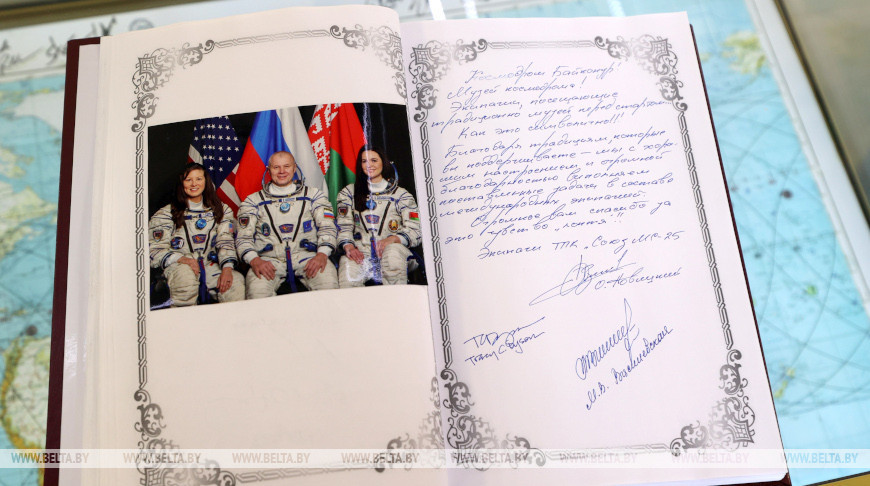 Космодром Байконур!
Музей космодрома!
Экипажи, посещающие
традиционно музей перед стартом.
Как это символично!!!
Благодаря традициям, которые
вы поддерживаете – мы с хоро-
шим настроением и огромной
благодарностью выполняем
поставленные задачи в составе
международных экипажей.
Огромное Вам спасибо за
это чувство „локтя"!!
Экипаж ТПК „Союз МС-25
О. Новицкий
Tracy C Dyson
М.В. Василевская
WWW.BELTA.BY WWW.BELTA.BY WWW.BELTA.BY WWW.BELTA.BY WWW.BELTA.BY WWW.BELTA.BY WWW.BELTA.BY WWW.BELTA.BY